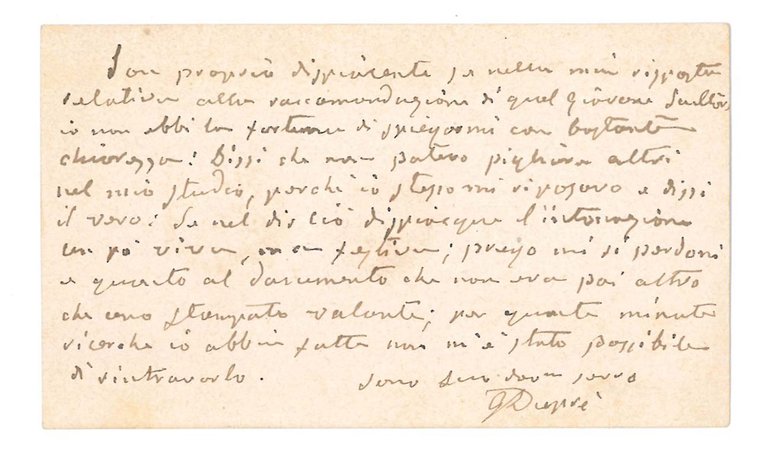 Son proprio dispiacente se nella mia risposta
relativa alla raccomandazione di quel giovane Scultor,
io non ebbi la fortuna di spiegarmi con bastante
chiarezza: Dissi che non potevo pigliare altri
nel mio studio, perchè io stesso mi riposavo e dissi
il vero: Se nel dir ciò dispiacque l'intonazione
un po' viva, ma festiva; prego mi si perdoni
e quanto al documento che non era poi altro
che uno stampato volante; per quante minute
ricerche io abbia fatte non m'è stato possibile
di rintravarlo.
Sono suo servo
GDuprè